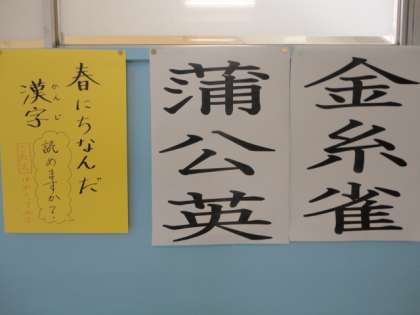 春にちなんだ
漢字
かんじ
読めますか?
蒲公英
金糸雀